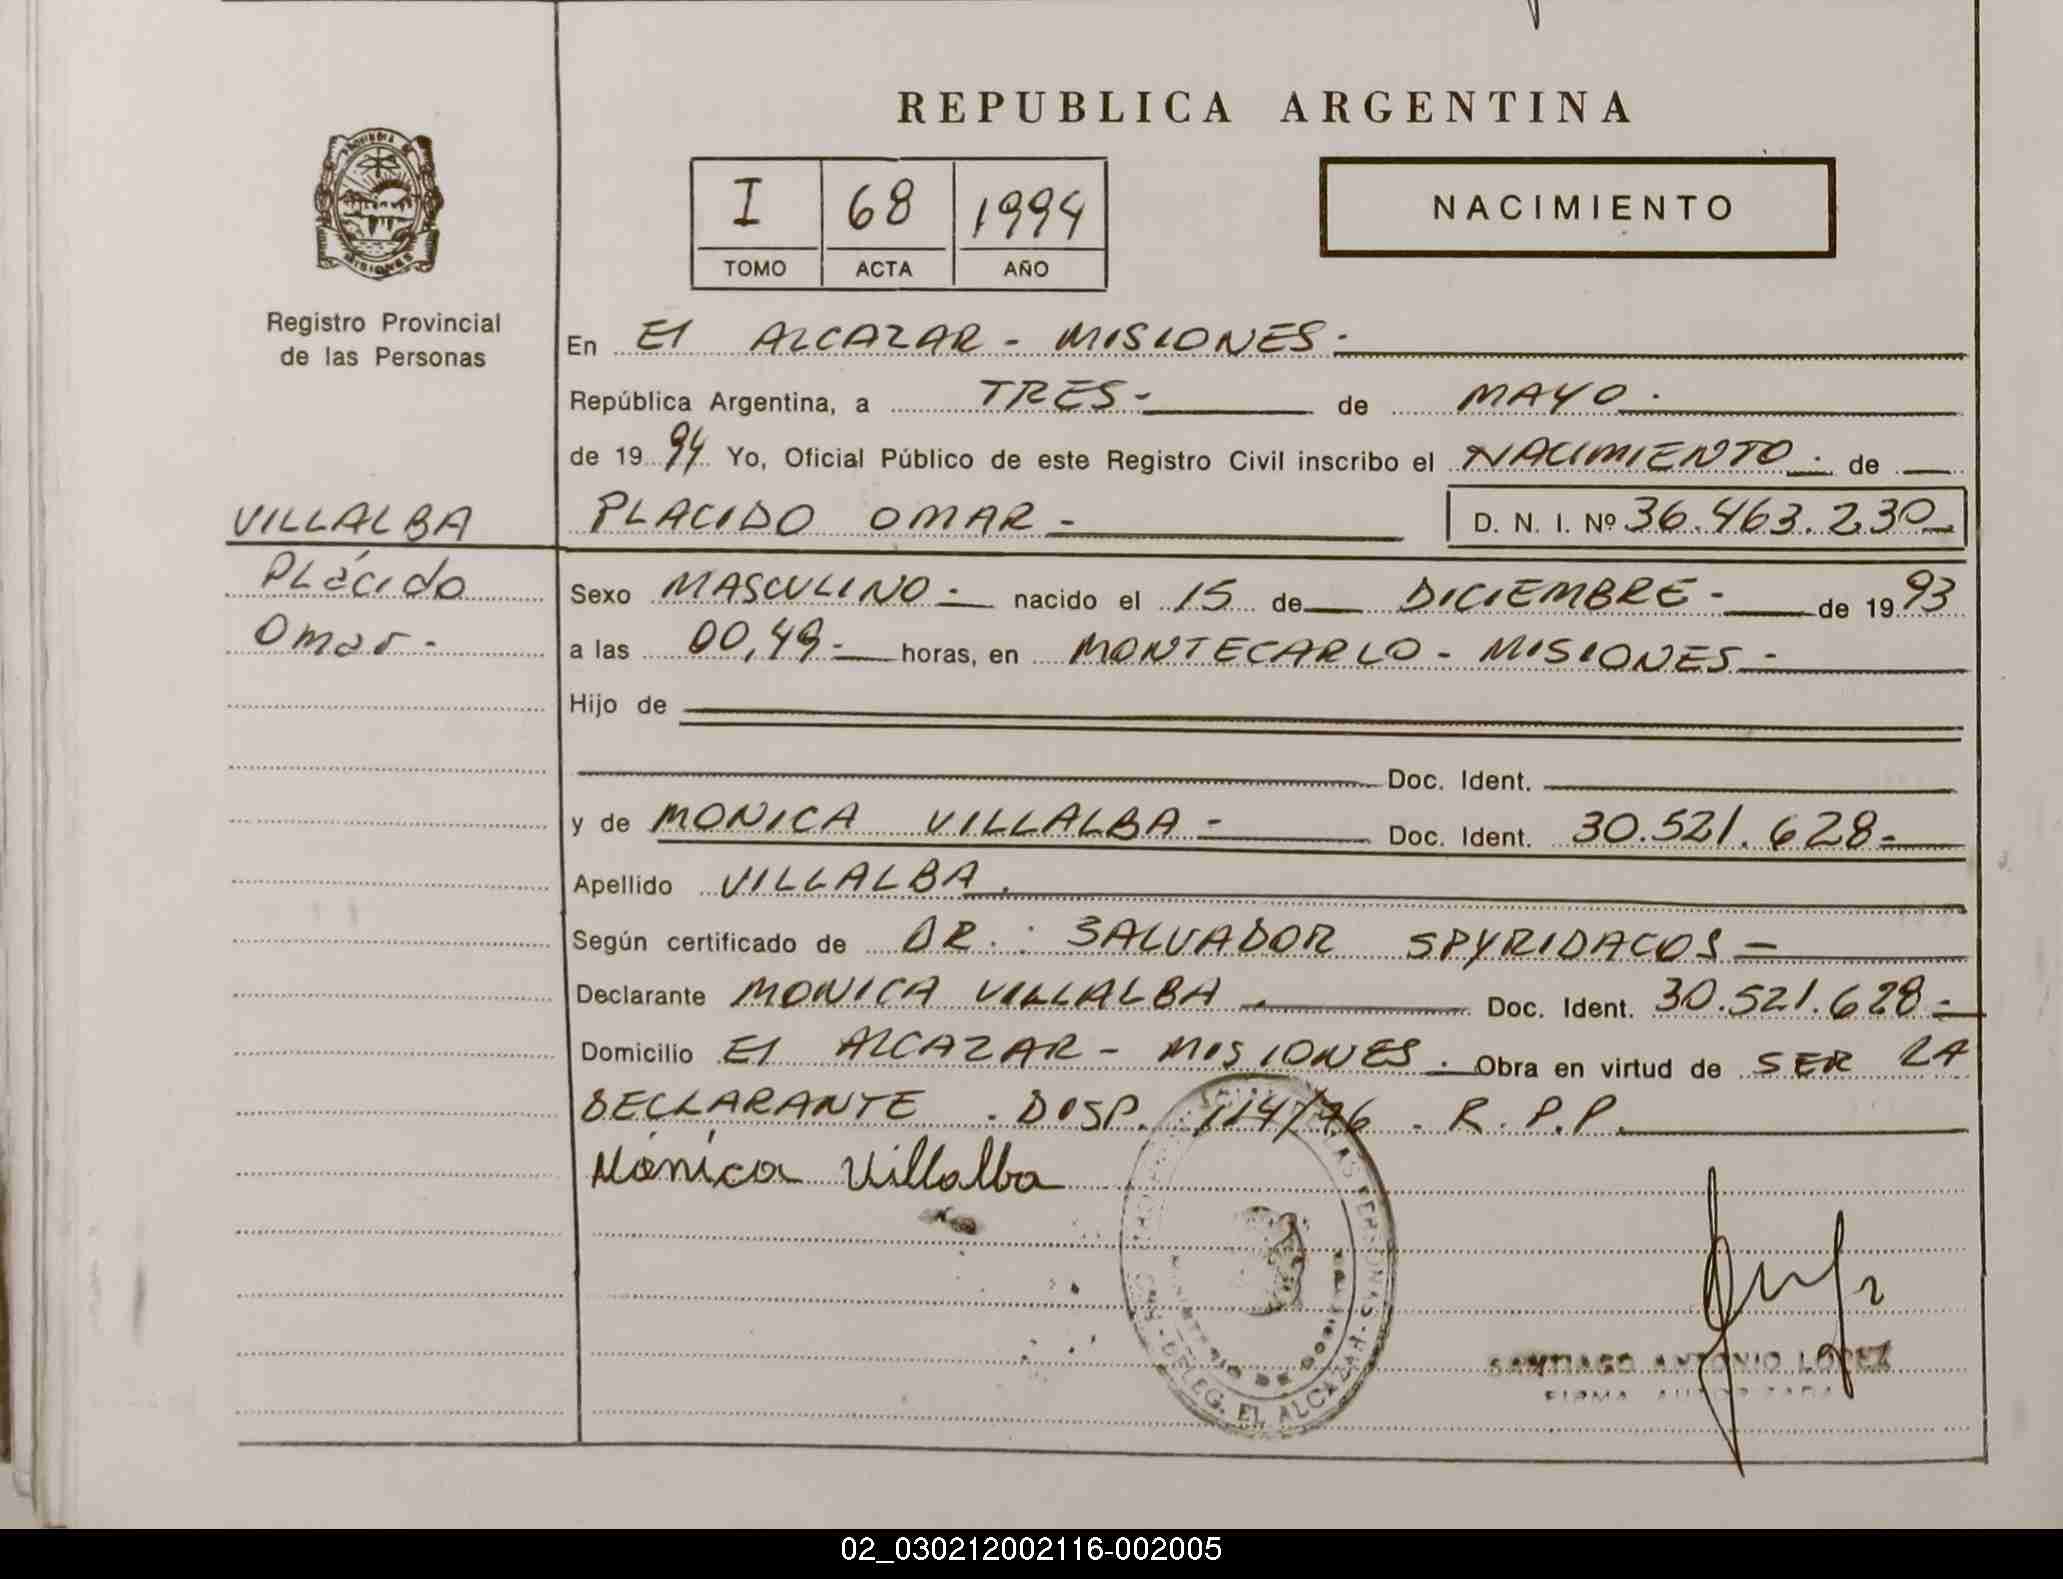 REPUBLICA ARGENTINA
PROVINCIA DE
MISIONES
Registro Provincial
de las Personas
I 68 1994
TOMO ACTA AÑO
NACIMIENTO
En El ALCAZAR - MISIONES -
República Argentina, a TRES - de MAYO -
de 1994 Yo, Oficial Público de este Registro Civil inscribo el NACIMIENTO - de
PLACIDO OMAR - D. N. I. Nº 36.463.230
VILLALBA
Plácido
Omar -
Sexo MASCULINO - nacido el 15 de DICIEMBRE - de 1993
a las 00,49 - horas, en MONTECARLO - MISIONES -
Hijo de
Doc. Ident.
y de MONICA VILLALBA - Doc. Ident. 30.521.628 -
Apellido VILLALBA.
Según certificado de DR.: SALVADOR SPYRIDACOS -
Declarante MONICA VILLALBA. Doc. Ident. 30.521.628 -
Domicilio El ALCAZAR - MISIONES. Obra en virtud de SER LA
DECLARANTE. DISP. 114/76. R.P.P.
Mónica Villalba
DELEG. EL ALCAZAR
SANTIAGO ANTONIO LOPEZ
FIRMA AUTORIZADA
02_030212002116-002005